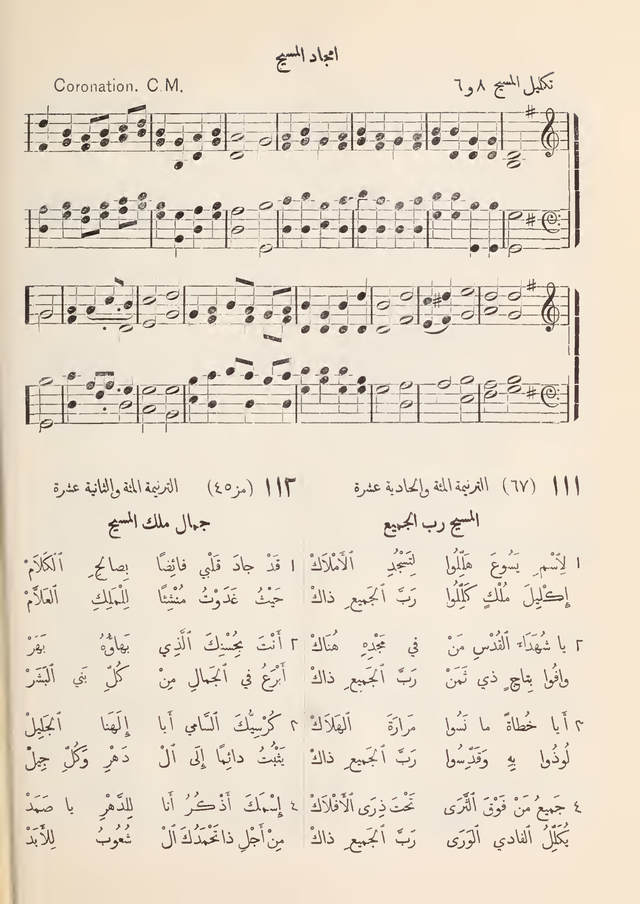 امجاد المسيح
تكليل المسيح ٨ و٦
Coronation. C.M.
١١١ (٦٧) الترنيمة المئة والحادية عشرة
المسيح رب الجميع
١ لِاسْمِ يَسُوعَ هَلِّلُوا لِتَسْجُدِ الْأَمْلَاكْ
إِكْلِيلَ مُلْكٍ كَلِّلُوا رَبَّ الْجَمِيعِ ذَاكْ
٢ يا شُهَدَاءَ الْقُدْسِ مَنْ فِي مَجْدِهِ هُنَاكْ
وافُوا بِتَاجٍ ذي ثَمَنْ رَبَّ الْجَمِيعِ ذاكْ
٣ أَيا خُطاةً ما نَسُوا مَرَارَةَ الْهَلَاكْ
لُوذُوا بِهِ وَقَدِّسُوا رَبَّ الْجَمِيعِ ذاكْ
٤ جَمِيعُ مَنْ فَوْقَ الثَّرَى تَحْتَ ذِرَى الْأَفْلَاكْ
يُكَلِّلُ الفادي الْوَرَى رَبَّ الْجَمِيعِ ذاكْ
١١٢ (مز٤٥) الترنيمة المئة والثانية عشرة
جمال ملك المسيح
١ قَدْ جادَ قَلْبي فائِضًا بِصالِحِ الْكَلَامْ
حَيْثُ غَدَوْتُ مُنْشِئًا لِلْمَلِكِ الْعَلَّامْ
٢ أَنْتَ بِحُسْنِكَ الَّذِي بَهاؤُهُ بَهَرْ
أَبْرَعُ في الْجَمَالِ مِنْ كُلِّ بَنِي الْبَشَرْ
٣ كُرْسِيُّكَ السَّامي أَيا إِلَهَنا الْجَلِيلْ
يَثْبُتُ دائِمًا إِلَى الْ دَهْرِ وَكُلِّ جِيلْ
٤ إِسْمَكَ أَذْكُرُ أَنا لِلدَّهْرِ يا صَمَدْ
مِنْ أَجْلِ ذا تَحْمَدُكَ الْ شُعُوبُ لِلْأَبَدْ